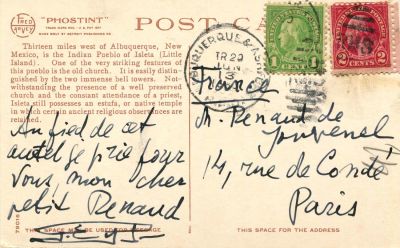 FRED HARVEY
"PHOSTINT"
TRADE MARK REG. U.S. PAT. OFF.
MADE ONLY BY DETROIT PUBLISHING CO.
POST CARD
Thirteen miles west of Albuquerque, New
Mexico, is the Indian Pueblo of Isleta (Little
Island). One of the very striking features of
this pueblo is the old church. It is easily distin-
guished by the two immense bell towers. Not-
withstanding the presence of a well preserved
church and the constant attendance of a priest,
Isleta still possesses an estufa, or native temple
in which certain ancient religious observances are
retained.
Au pied de cet
autel je prie pour
vous, mon cher
petit Renaud
79018
THIS SPACE MAY BE USED FOR MESSAGE
ALBUQUERQUE &
TR 20
JUN
3
1 CENT 1
2 CENTS 2
France
M. Renaud de
Jouvenel
14, rue de Condé
Paris
THIS SPACE FOR THE ADDRESS